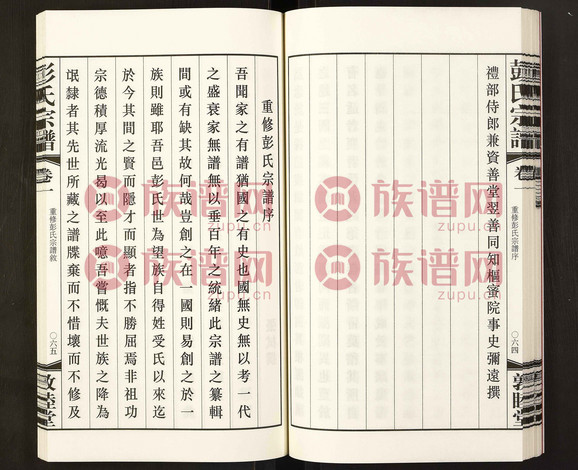 彭氏宗譜
卷一
重修彭氏宗譜序
〇六四
敦睦堂
禮部侍郎兼資善堂翌善同知樞蜜院事史彌遠撰
重修彭氏宗譜序
吾聞家之有譜猶國之有史也國無史無以考一代
之盛衰家無譜無以垂百年之統緒此宗譜之纂輯
間或有缺其故何哉豈創之在一國則易創之於一
族則難耶吾邑彭氏世為望族自得姓受氏以來迄
於今其間之賢而隱才而顯者指不勝屈焉非祖功
宗德積厚流光曷以至此噫吾嘗慨夫世族之降為
氓隸者其先世所藏之譜牒棄而不惜壞而不修及
彭氏宗譜
卷一
重修彭氏宗譜敘
〇六五
敦睦堂
族谱网
zupu.cn
族谱网
zupu.cn
族谱网
zupu.cn
族谱网
zupu.cn